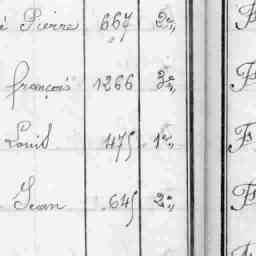 é Pierre 667 2e,, F
françois 1266 3e,, F
Louis 475 1e,, F
Jean 645 2e,, F